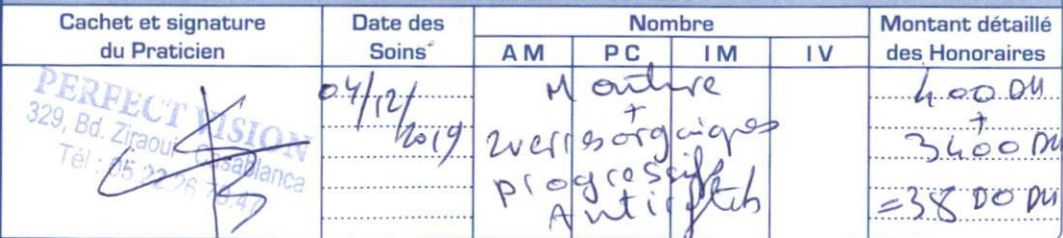 Cachet et signature du Praticien
Date des Soins
Nombre
Montant détaillé des Honoraires
AM PC IM IV
PERFECT VISION
329, Bd. Ziraoui Casablanca
Tél : 05 22 26
04/12/
2019
Monture
+
2 verres organiques
progressifs
Antireflets
400 DH
+
3400 DH
=3800 DH